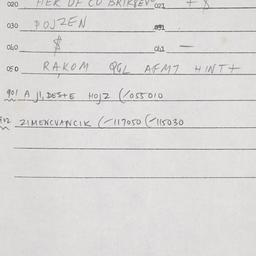 020 HER DF CU BRIKBEV 021 + $
030 POJZEN 031
060 $ 061 —
050 RAKOM QGL AFMT HINT+
901 A J1, DESTE HOJZ (/055010
902 ZIMENCVANCIK (/117050 (/115030